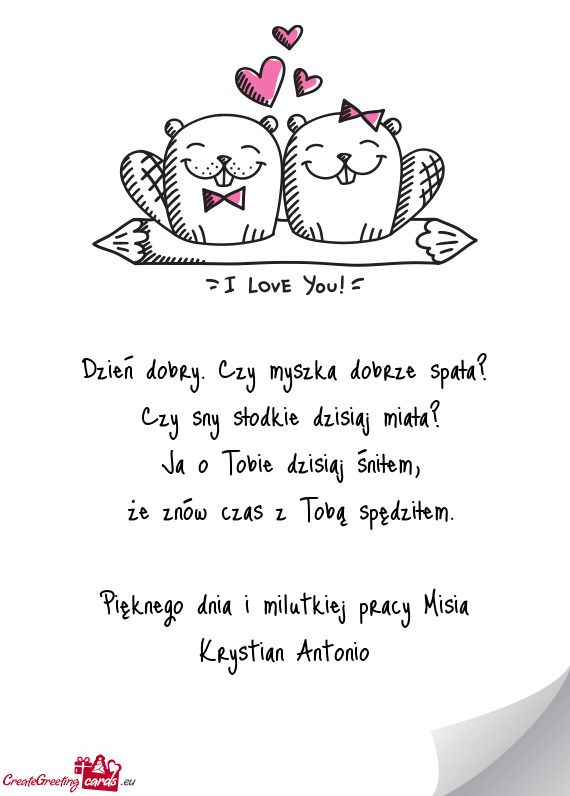 I LOVE YOU!
Dzień dobry. Czy myszka dobrze spała?
Czy sny słodkie dzisiaj miała?
Ja o Tobie dzisiaj śniłem,
że znów czas z Tobą spędziłem.
Pięknego dnia i milutkiej pracy Misia
Krystian Antonio
CreateGreeting cards .eu